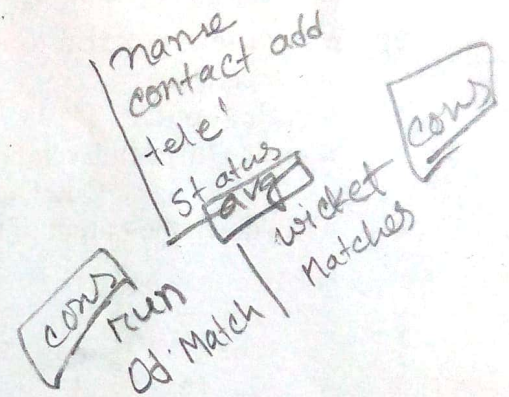 name
contact add
tele'
status
avg
cons
wicket
matches
cons
run
Od. Match